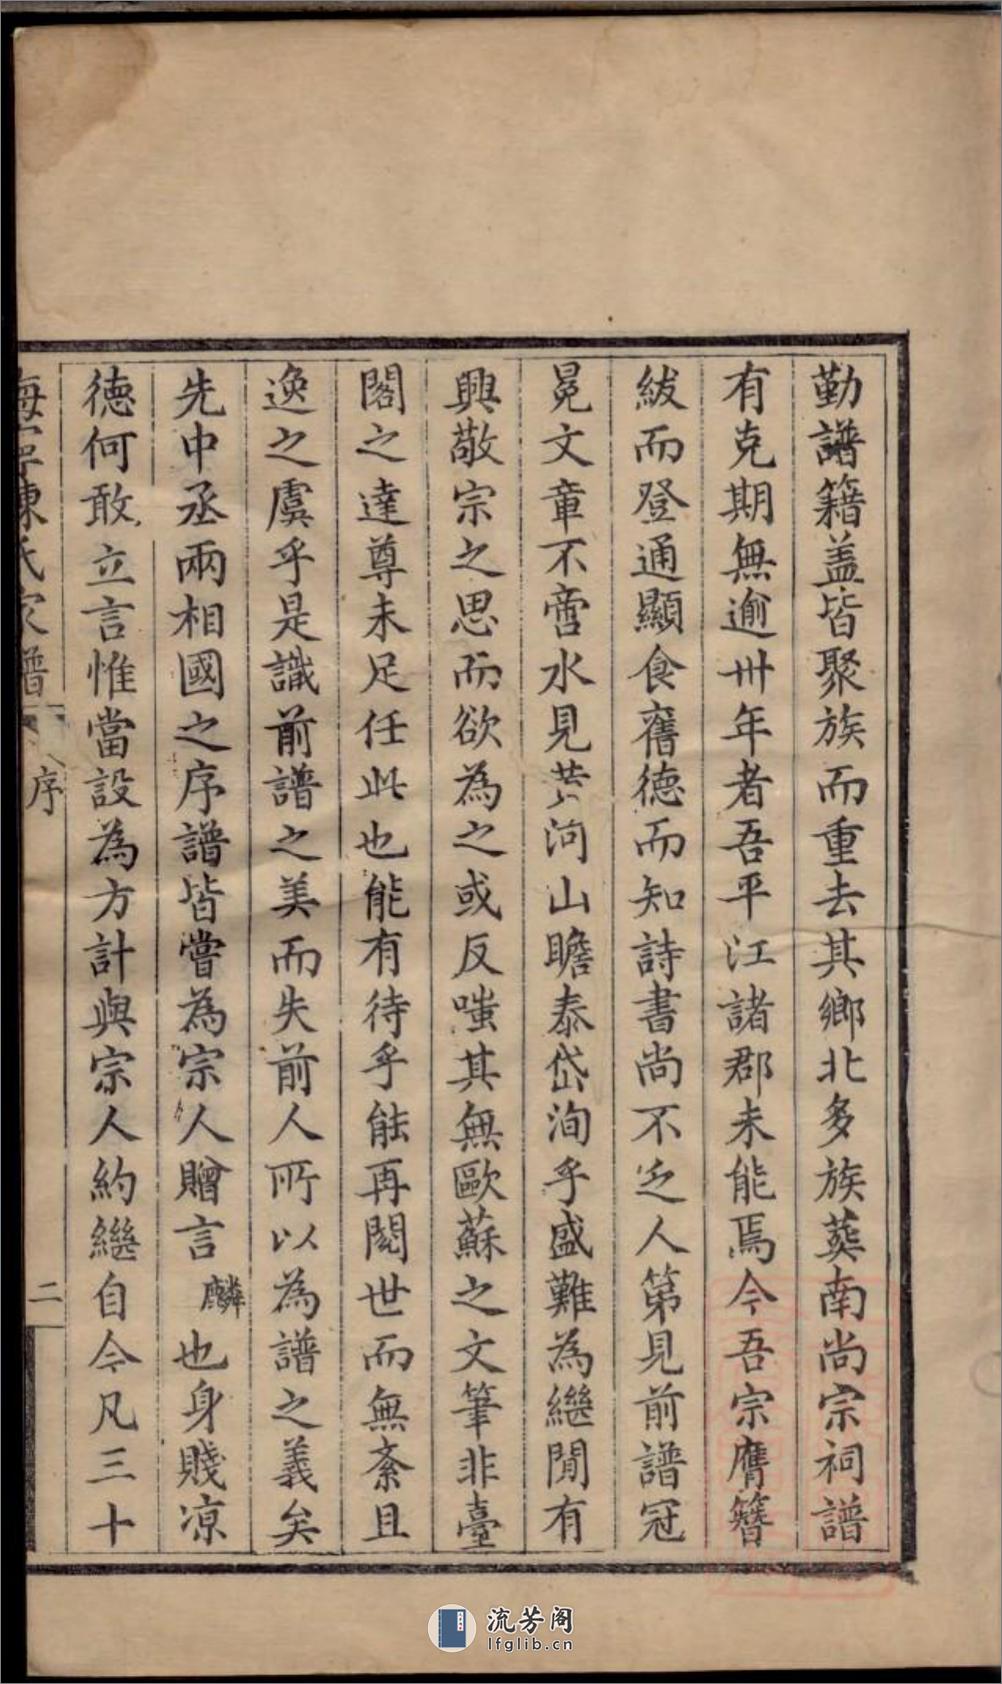 勤譜籍盖皆聚族而重去其鄉北多族葬南尚宗祠譜
有克期無逾卅年者吾平江諸郡未能焉今吾宗膺簪
紱而登通顯食舊德而知詩書尚不乏人第見前譜冠
冕文章不啻水見黄河山瞻泰岱洵乎盛難為繼閒有
興敬宗之思而欲為之或反嗤其無歐蘇之文筆非臺
閣之達尊未足任此也能有待乎能再閱世而無紊且
逸之虞乎是識前譜之美而失前人所以為譜之義矣
先中丞兩相國之序譜皆嘗為宗人贈言麟也身賤凉
德何敢立言惟當設為方計與宗人約繼自今凡三十
海寧陳氏家譜 序 二
流芳阁
lfglib.cn